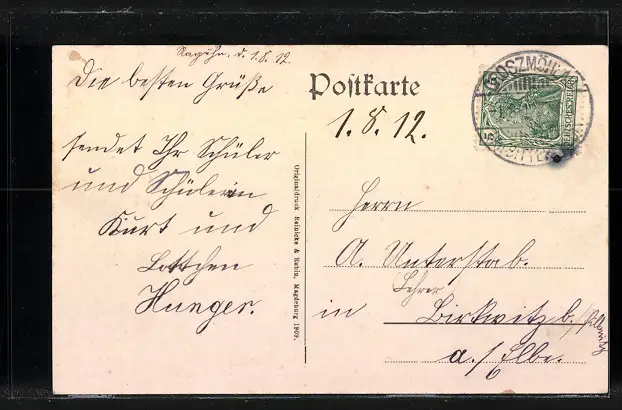 Raguhn, d. 1.8.12.
Die besten Grüße
sendet Ihr Schüler
und Schülerin
Kurt und
Lottchen
Hunger.
Originaldruck Reinicke & Rubin, Magdeburg 1909.
Postkarte
1.8.12.
DEUTSCHES REICH
5
Herrn
A. Unterstab.
Lehrer
in Birkwitz b./Pillnitz
a./Elbe.